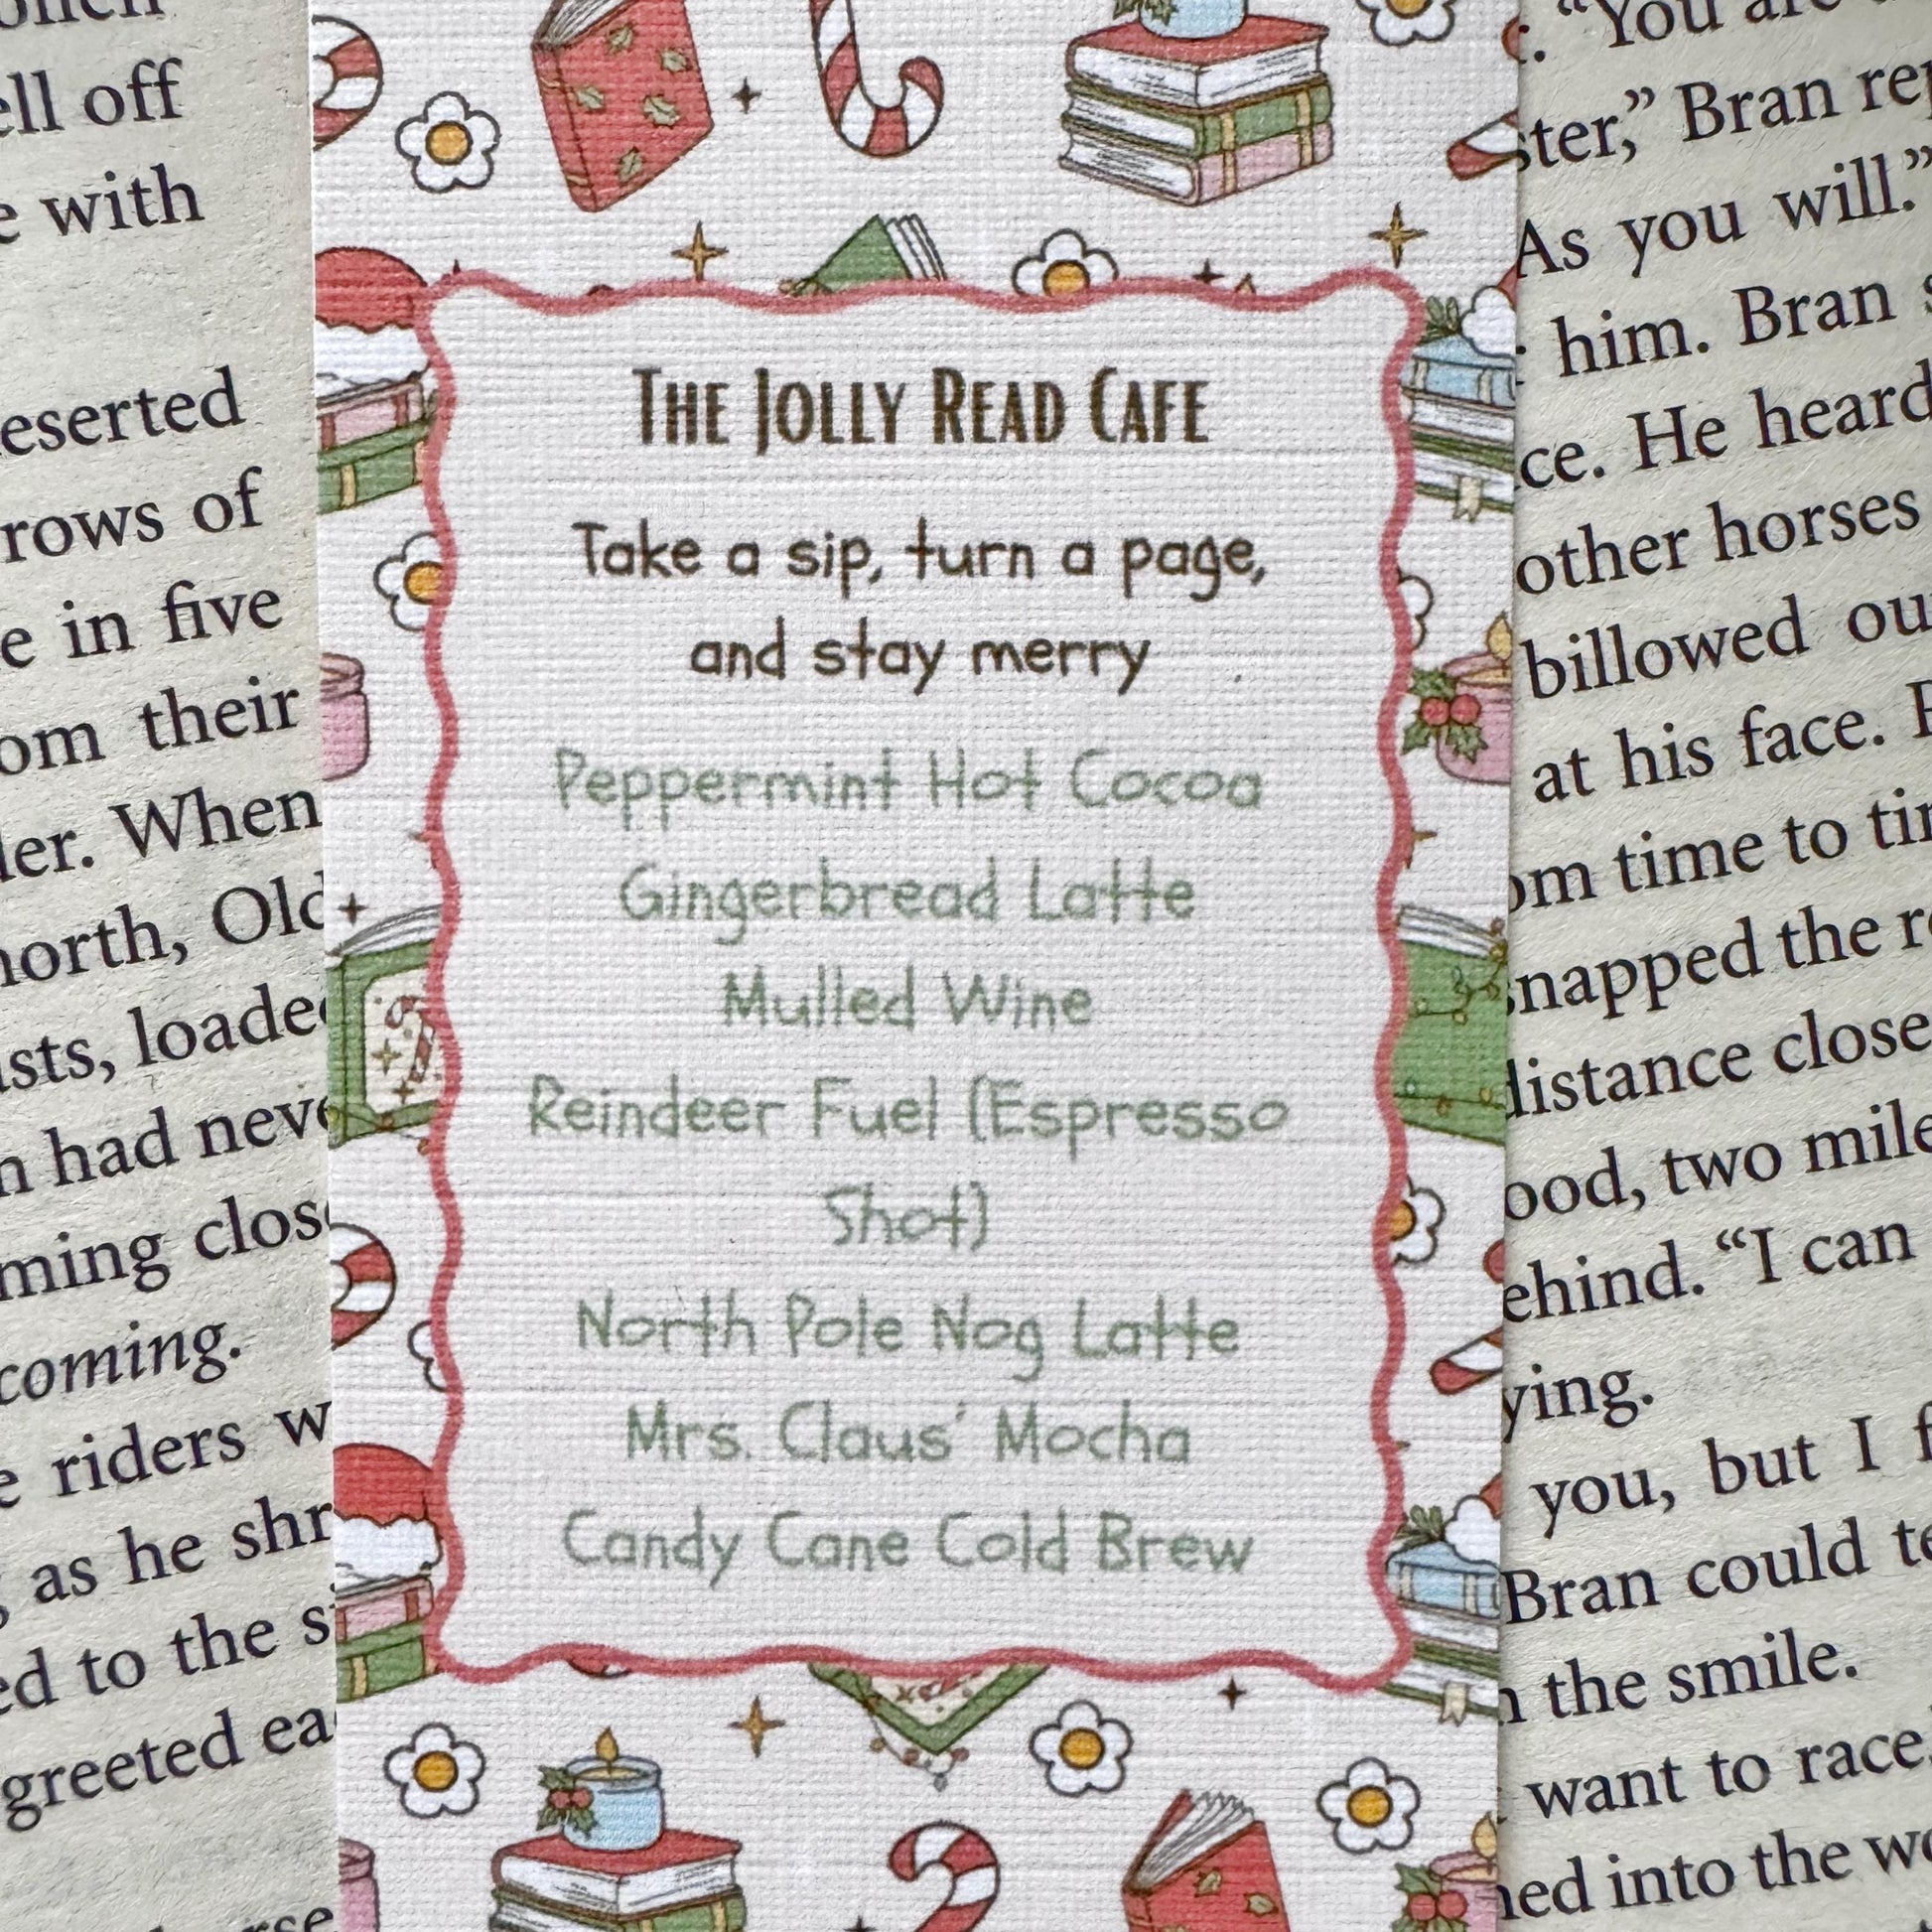 ell off
e with
eserted
rows of
e in five
om their
ler. When
north, Old
sts, loaded
had never
ming close
coming.
riders w
as he shr
ed to the si
greeted ea
THE JOLLY READ CAFE
Take a sip, turn a page,
and stay merry
Peppermint Hot Cocoa
Gingerbread Latte
Mulled Wine
Reindeer Fuel (Espresso
Shot)
North Pole Nog Latte
Mrs. Claus' Mocha
Candy Cane Cold Brew
“You are
ster,” Bran rep
As you will.”
him. Bran s
ce. He heard
other horses
billowed ou
at his face.
om time to tim
snapped the re
distance close
ood, two mile
ehind. “I can
ying.
you, but I f
Bran could te
the smile.
want to race
ned into the wo